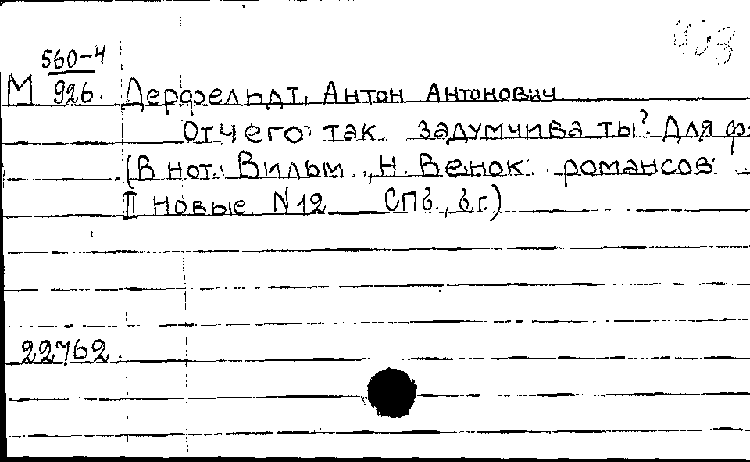 560-4
М 926. Дерфельдт, Антон Антонович
Отчего так задумчива ты? Для ф
(В нот.: Вильм, Н. Венок романсов
II новые N 12 СПб., б.г.)
22762.